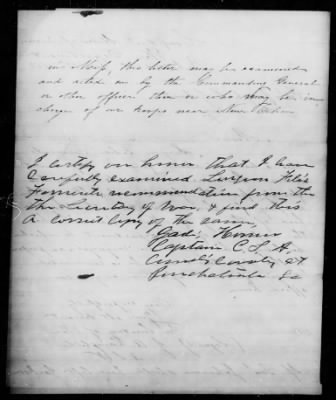 in Miss, this letter may be examined
and acted on by the Commanding General
or other officer then or who may be in
charge of our troops near New
I certify on honor that I have
Carefully examined Surgeon
recommendation from the
the Secretary of War & find this
a correct copy of the same
Captain C. S. A.
Comd'g Cavalry at
Ponchatoula La